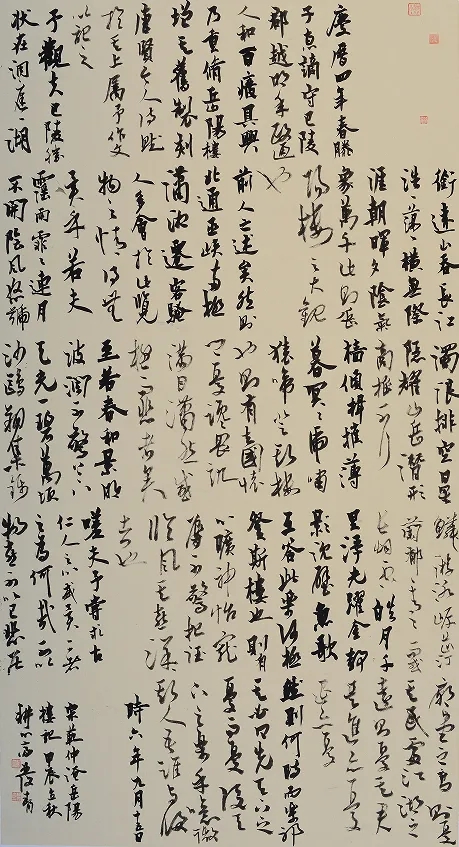 慶曆四年春滕
子京謫守巴陵
郡越明年政通
人和百廢具興
乃重脩岳陽樓
增其舊製刻
唐賢今人詩賦
於其上屬予作文
以記之
予觀夫巴陵勝
狀在洞庭一湖
銜遠山吞長江
浩浩蕩蕩橫無際
涯朝暉夕陰氣
象萬千此則岳
陽樓之大觀
也
前人之述矣然則
北通巫峽南極
瀟湘遷客騷
人多會於此覽
物之情得無
異乎若夫
霪雨霏霏連月
不開陰風怒號
濁浪排空日星
隱耀山岳潛形
商旅不行
檣傾楫摧薄
暮冥冥虎嘯
猿啼登斯樓
也則有去國懷
鄉憂讒畏譏
滿目蕭然感
極而悲者矣
至若春和景明
波瀾不驚上下
天光一碧萬頃
沙鷗翔集錦
鱗游泳岸芷汀
蘭郁郁青青而或
長煙一空皓月千
里浮光躍金靜
影沈璧漁歌
互答此樂何極
登斯樓也則有
心曠神怡寵
辱不驚把酒
臨風其喜洋洋
者也
嗟夫予嘗求古
仁人之心或異二者
之為何哉不以
物喜不以己悲居
廟堂之高則憂
其民處江湖之
遠則憂其君
是進亦憂
退亦憂
然則何時而樂耶
其必曰先天下之
憂而憂後天
下之樂乎噫微
斯人吾誰與歸
時六年九月十五日
宋范仲淹岳陽
樓記甲辰立秋
耕心齋